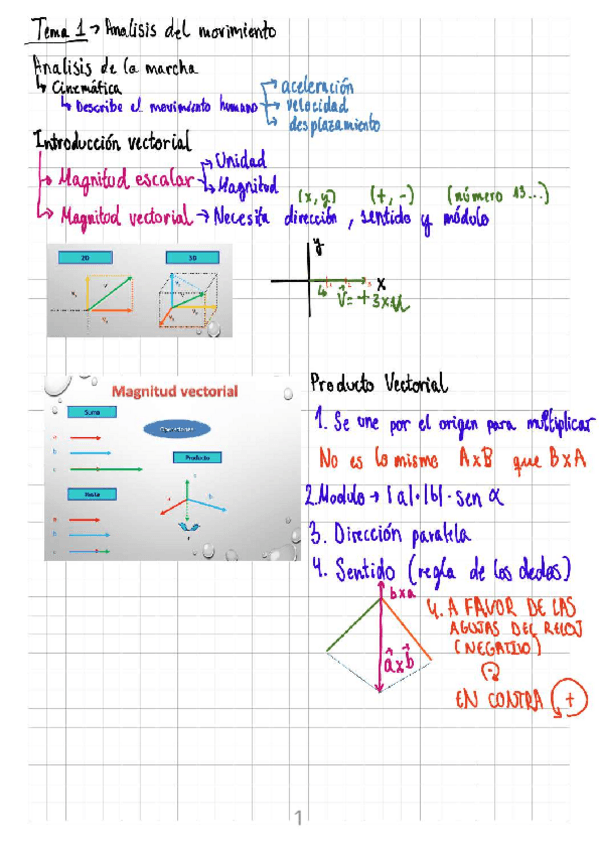 Tema 1 → Analisis del movimiento
Analisis de la marcha
↳ Cinemática
↳ Describe el movimiento humano
→ aceleración
→ velocidad
↳ desplazamiento
Introducción vectorial
↳ Magnitud escalar
→ Unidad
↳ Magnitud
(x, y) (+, -) (número 13...)
↳ Magnitud vectorial → Necesita dirección, sentido y módulo
2D
3D
y
x
1 2 3
Magnitud vectorial
Suma
a
b
c
Resta
a
b
c
Producto
a
b
c
Producto Vectorial
1. Se une por el origen para multiplicar
No es lo mismo AxB que BxA
2. Modulo → |a|·|b|· sen α
3. Dirección paralela
4. Sentido (regla de los dedos)
bxa
axb
4. A FAVOR DE LAS
AGUJAS DEL RELOJ
(NEGATIVO)
-
EN CONTRA +
1